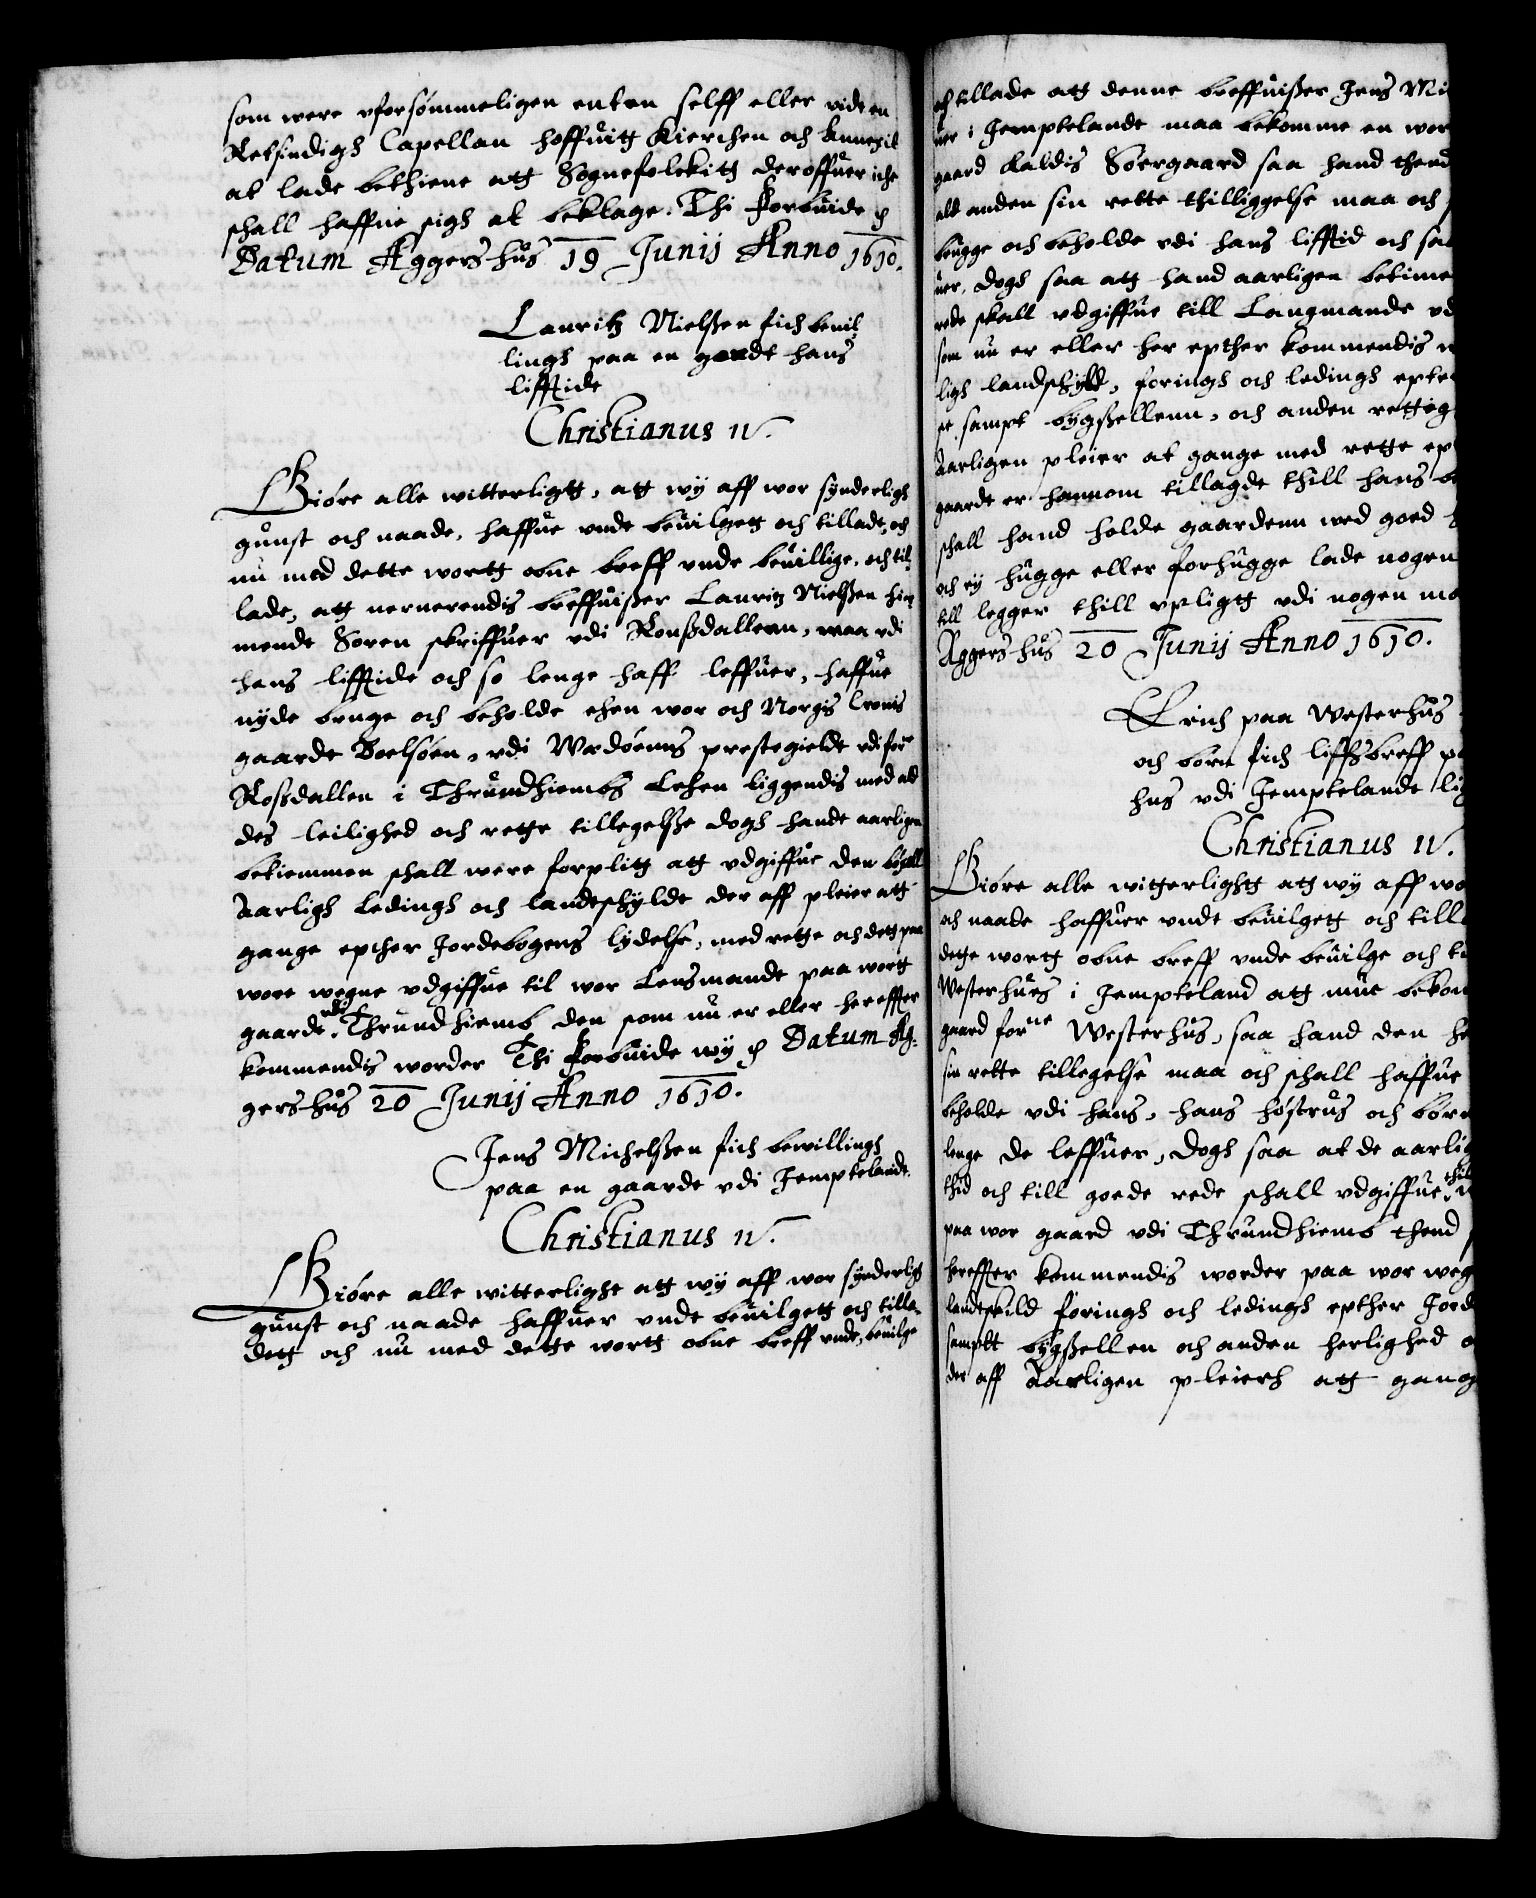 som were vforsömmeligen enten selff eller vidt en
Retsindigh Capellan hoffuitg Kierchen och Annexit
at lade bethiene att Sognefolckitt deroffuer iche
schall haffue sigh at beklage. Thi forbiude
Datum Aggershus 19 Junij Anno 1610.
Lauritz Nielssen fich beuil
lingh paa en gardt hans
lifftide
Christianus IV.
Giöre alle witterligtt, att wij aff wor synderligh
gunst och naade, haffue vnde beuilgett och tilladt, och
nu med dette wortt obne breff vnde beuillige, och til
lade, att nernerendis breffuisser Lauritz Nielssen
mende Soren skriffuer vdi Romssdallenn, maa vdi
hans lifftide och so lenge hand leffuer, haffue
nyde bruge och beholde ehen wor och Norgis Cronis
gaarde Boelsöen, vdi Wedöenns prestegieldt vdi forne
Rossdallen i Thrundhiembs Lehen liggendis med ald
des leilighed och rette tillegelsse dogh hande aarligen
betiemmen schall were forplitt att vdgiffue den
Aarligh Ledingh och landtschylde der aff pleier att
gange epther Jordebogens lydelse, med rette och dett paa
wore wegne vdgiffue til wor Lensmande paa wortt
gaarde vdi Thrundhiemb den som nu er eller hereffter
kommendis worder Thi forbiude wij Datum Ag-
gershus 20 Junij Anno 1610.
Jens Michelssen fich bewillingh
paa en gaarde vdi Jemptelandt.
Christianus IV.
Giöre alle witterlighe att wij aff wor synderligh
gunst och naade haffuer vndt beuilgett och tilla-
dett och nu med dette wortt obne breff vnde, beuilge
och tillade att denne breffuisser Jens Mi
uer i Jemptelande maa bekomme en wor
gaard kaldis Söergaard saa hand thend
ald anden sin rette thilliggelse maa och
brugge och beholde vdi hans lifftid och saa
uer, dogh saa att hand aarligen betime
rede skall vdgiffue till Langmande vd
som nu er eller her epther kommendis w
ligh landschyld, foringh och ledingh epte
sampt bygssellenn, och anden rettig
Aarligen pleier at gange med rette ep
gaardt er hannom tillagde thill hans be
schall hand holde gaardenn wed goed
och ey hugge eller forhugge lade nogen
till legger thill vpligtt vdi nogen ma
Aggershus 20 Junij Anno 1610.
Erich paa Westerhus
och born fich liffsbreff pa
hus vdi Jemptelande lig
Christianus IV.
Giöre alle witterlightt att wij aff wo
och naade haffuer vndt beuilgett och till
dette wortt obne breff vnde beuilge och ti
Westerhus i Jempteland att mue bekom
gaard forne Westerhus, saa hand den
sin rette tillegelse maa och schall haffue
beholde vdi hans, hans höstrus och börn
lenge de leffuer, dogh saa at de aarlig
thid och till goede rede schall vdgiffue thil
paa wor gaard vdi Thrundhiemb thend
hereffter kommendis worder paa wor weg
landtskild foringh och ledingh epther Jord
samptt bygssellen och anden herlighed o
der aff Aarligen pleierh att gang